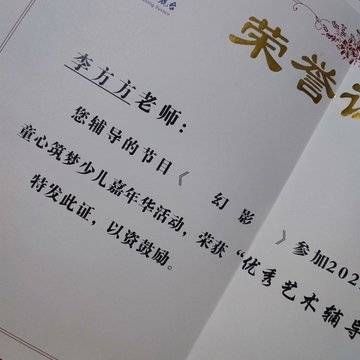 荣誉证
李方方老师：
您辅导的节目《 幻影 》参加202
童心筑梦少儿嘉年华活动，荣获“优秀艺术辅导
特发此证，以资鼓励。